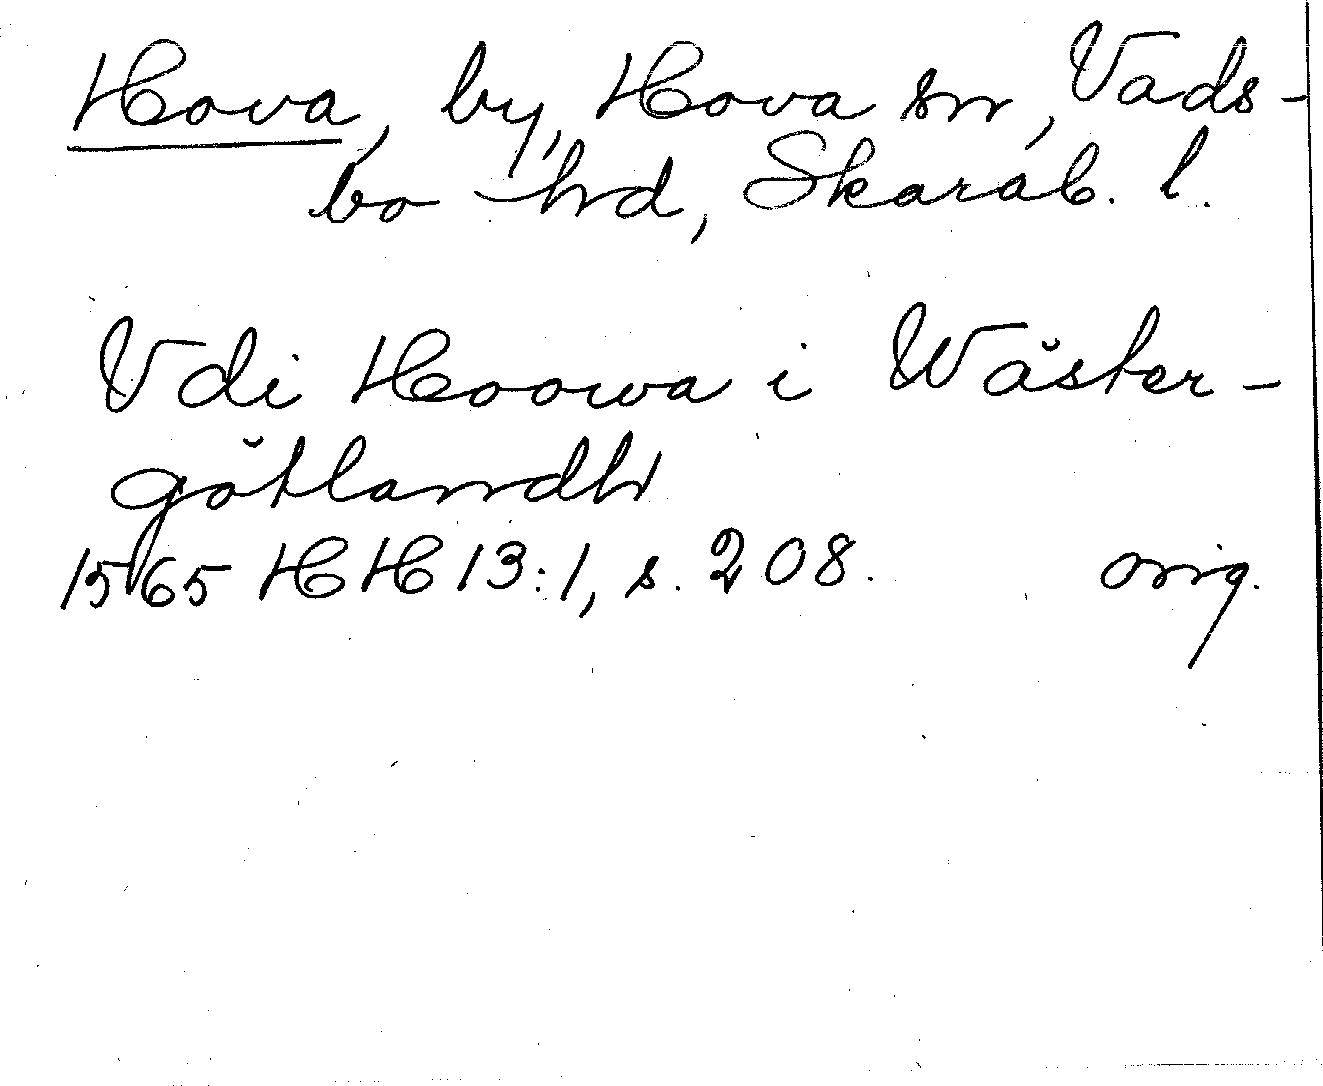 Hova, by, Hova sn, Vads-
bo hd, Skarab. l.
Vdi Hoowa i Wäster-
götlandh
1565 HH 13:1, s. 208. orig.